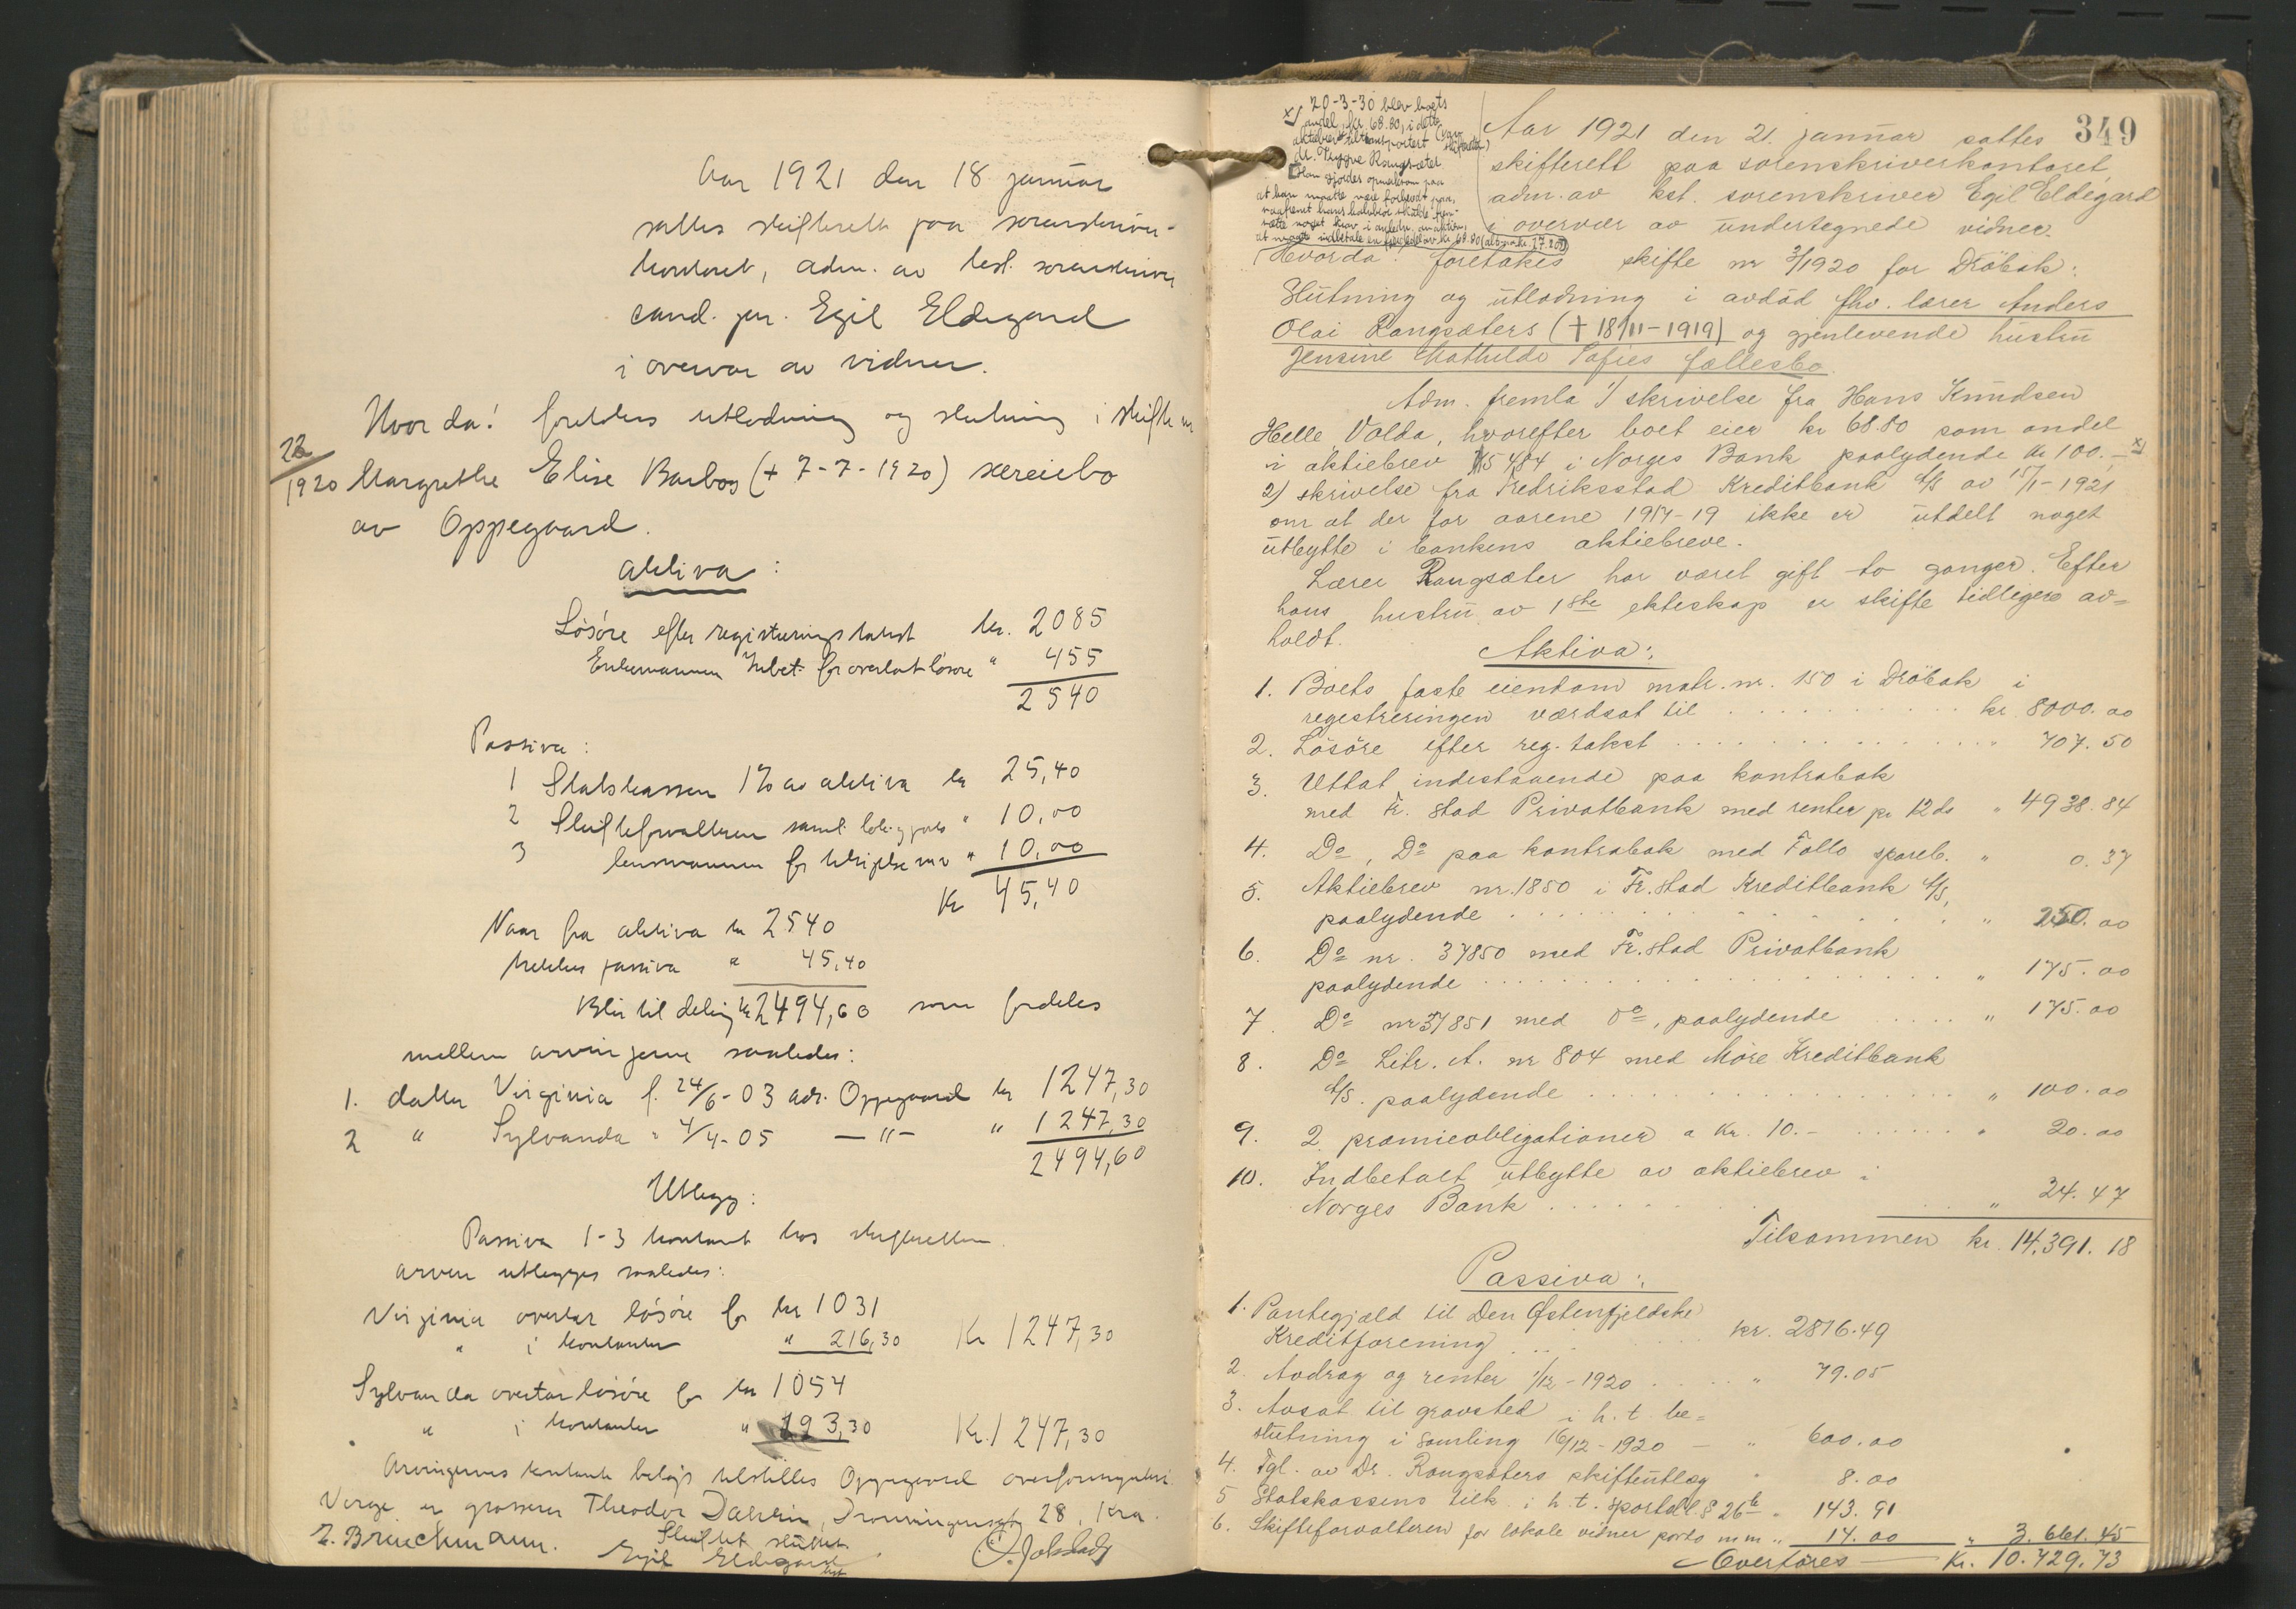 Aar 1921 den 18 januar
sattes skifterett paa sorenskriver-
kontoret, adm. av best. sorenskriver
cand. jur. Egil Eldegard
i overvær av vidner.
Hvorda! foretokes utlodning og slutning i skifte nr
22/1920 Margrethe Elise Barbos (+ 7-7-1920) særeiebo
av Oppegaard.
Aktiva:
Lösöre efter registreringstakst kr. 2085
Enkemannen indbet. for overlatt lösöre " 455
2540
Passiva:
1 Statskassen 1% av aktiva kr 25,40
2 Skifteforvalteren saml. lok. og porto " 10,00
3 lensmannen for 10,00
Kr 45,40
Naar fra aktiva kr 2540
trekkes passiva " 45,40
Blir til deling kr 2494,60 som fordeles
mellem arvingerne saaledes:
1. datter Virginia f. 24/6-03 adr. Oppegaard kr 1247,30
2 " Sylvanda " 4/4-05 —"— " 1247,30
2494,60
Utlegg:
Passiva 1-3 kontant hos skifteretten.
Arven utlegges saaledes:
Virginia overtar lösöre for kr 1031
" i kontanter " 216,30 Kr 1247,30
Sylvanda overtar lösöre for kr 1054
" i kontanter " 193,30 Kr. 1247,30
Arvingernes kontante beløp tilstilles Oppegaard overformynderi.
Verge er grosserer Theodor Dronningensgt 28, Kra.
Skiftet sluttet.
E. Brueckmann. Egil Eldegard
349
x) 20-3-30 blev boets
andel, kr 68.80, i dette
aktiebrev transportert (vær skifteretten)
dr. Trygve Rangsæter.
Han gjordes opmerksom paa
at han maatte være forberedt paa,
at maatte indbetale en kr. 68.80
Aar 1921 den 21. januar sattes
skifterett paa sorenskriverkontoret,
adm. av kst. sorenskriver Egil Eldegard
i overvær av undertegnede vidner.
Hvorda! foretokes skifte nr 3/1920 for Dröbak:
Slutning og utlodning i avdöd fhv. lærer Anders
Olai Rangsæters (+ 18/11-1919) og gjenlevende hustru
Jensine Mathilde Sofies fællesbo.
Adm. fremla 1) skrivelse fra Hans Knudsen
Helle, Volda, hvorefter boet eier kr 68.80 som andel
i aktiebrev 15484 i Norges Bank paalydende kr 100.- x)
2) skrivelse fra Fredriksstad Kreditbank A/S av 15/1-1921
om at der for aarene 1917-19 ikke er utdelt noget
utbytte i bankens aktiebreve.
Lærer Rangsæter har været gift to ganger. Efter
hans hustru av 1ste ekteskap er skifte tidligere av=
holdt.
Aktiva:
1. Boets faste eiendom matr. nr. 150 i Dröbak i
registreringen værdsat til kr 8000.00
2. Lösöre efter reg. takst " 707.50
3. Uttat indestaaende paa kontrabok
med Fr. stad Privatbank med renter pr 12 ds " 4938.84
4. Do, Do paa kontrabok med Follo spareb. " 0.37
5. Aktiebrev nr. 1850 i Fr. stad Kreditbank A/S,
paalydende " 250.00
6. Do nr. 37850 med Fr. stad Privatbank
paalydende " 175.00
7. Do nr 37851 med do, paalydende " 175.00
8. Do Litr. A. nr 804 med Möre Kreditbank
A/S. paalydende " 100.00
9. 2 præmieobligationer a Kr. 10.- " 20.00
10. Indbetalt utbytte av aktiebrev i
Norges Bank " 24.47
Tilsammen kr. 14,391.18
Passiva:
1. Pantegjæld til Den Østenfjeldske
Kreditforening kr. 2816.49
2. Avdrag og renter 1/12-1920 " 79.05
3. Avsat til gravsted i h. t. be=
slutning i samling 16/12-1920 — " 600.00
4. Tgl. av Dr. Rangsæters skifteutlæg " 8.00
5 Statskassens tilk. i h. t. sportell. § 26 " 143.91
6. Skifteforvalteren for lokale vidner porto m m " 14.00 " 3.661.45
Overføres Kr. 10.729.73